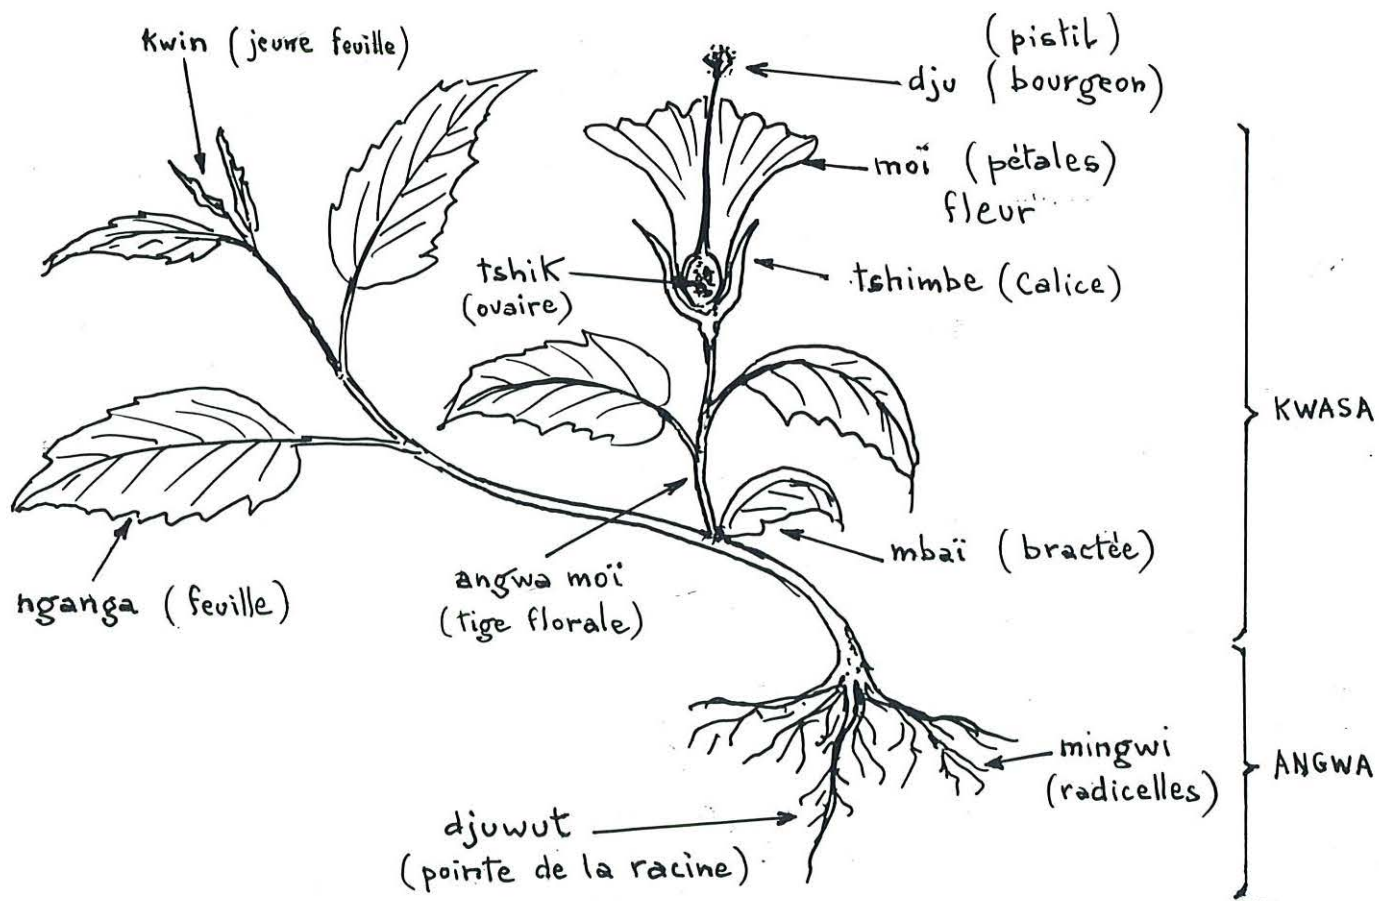 kwin (jeune feuille)
(pistil)
dju (bourgeon)
moï (pétales)
fleur
tshik
(ovaire)
tshimbe (calice)
KWASA
nganga (feuille)
angwa moï
(tige florale)
mbaï (bractée)
mingwi
(radicelles)
ANGWA
djuwut
(pointe de la racine)